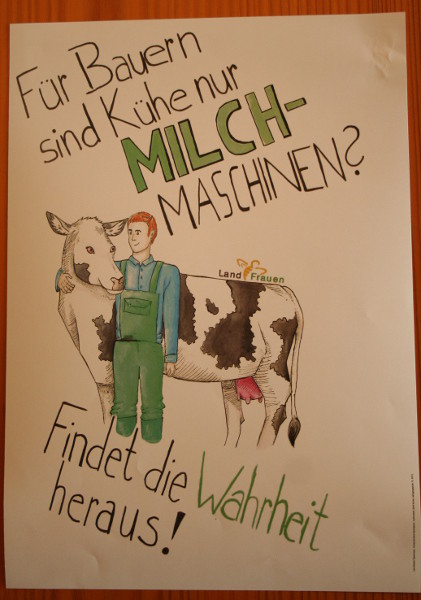 Für Bauern
sind Kühe nur
MILCH-
MASCHINEN?
Land Frauen
Findet die Wahrheit
heraus!